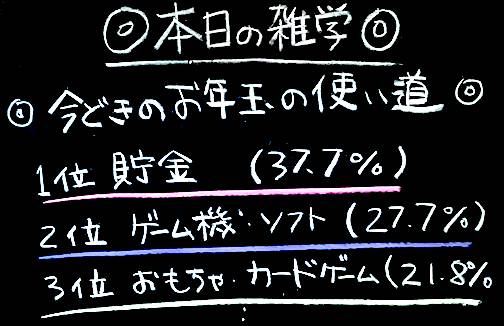 ◎本日の雑学◎
◎今どきのお年玉の使い道◎
1位 貯金 (37.7%)
2位 ゲーム機・ソフト (27.7%)
3位 おもちゃ・カードゲーム (21.8%